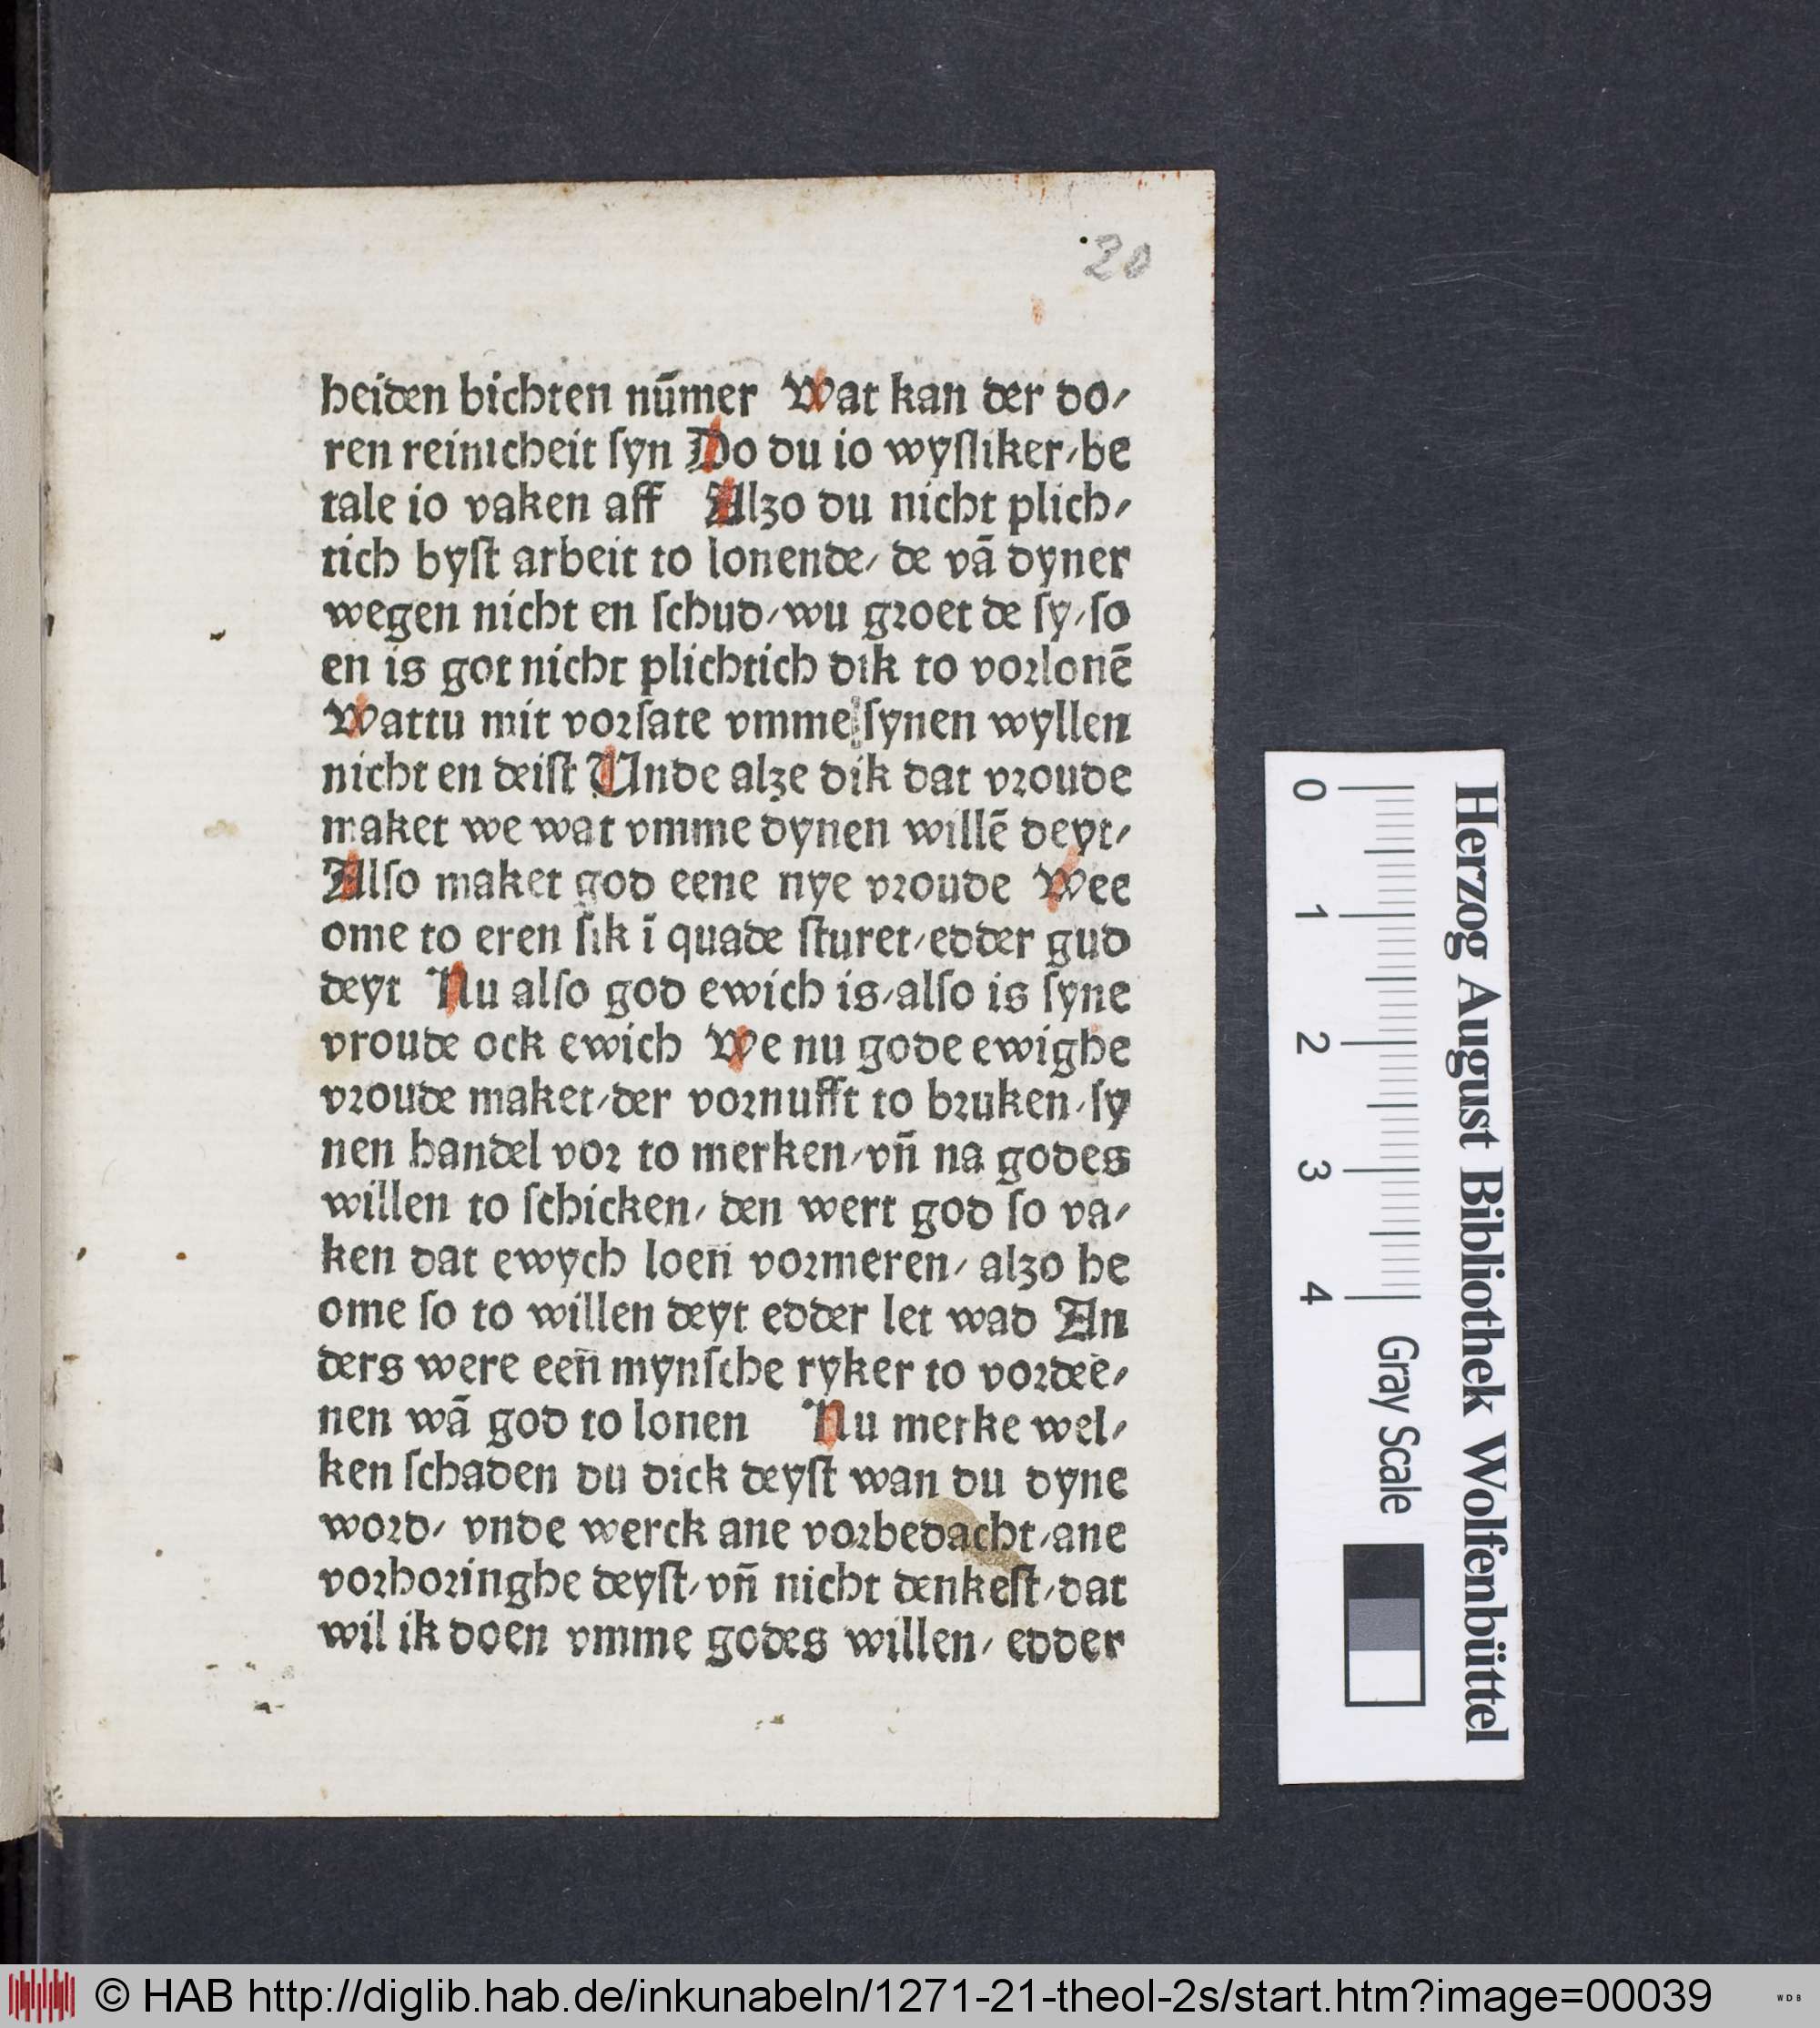 20
heiden bichten nūmer Wat kan der do/
ren reinicheit ſyn Do du io wyſliker/be
tale io vaken aff Alzo du nicht plich/
tich byſt arbeit to lonende/ de vā dyner
wegen nicht en ſchud/wu gꝛoet de ſy/ſo
en is got nicht plichtich dik to voꝛlonē
Wattu mit voꝛſate vmme ſynen wyllen
nicht en deiſt Unde alze dik dat vꝛoude
maket we wat vmme dynen willē deyt/
Alſo maket god eene nye vꝛoude Wee
ome to eren ſik ī quade ſturet/edder gud
deyt Nu alſo god ewich is/alſo is ſyne
vroude ock ewich We nu gode ewighe
vꝛoude maket/der voꝛnufft to bꝛuken/ſy
nen handel voꝛ to merken/vn̄ na godes
willen to ſchicken/ den wert god ſo va/
ken dat ewych loen̄ voꝛmeren/ alzo he
ome ſo to willen deyt edder let wad An
ders were een̄ mynſche ryker to voꝛdee/
nen wā god to lonen Nu merke wel/
ken ſchaden du dick deyſt wan du dyne
woꝛd/ vnde werck ane voꝛbedacht/ane
voꝛhoꝛinghe deyſt/vn̄ nicht denkeſt/dat
wil ik doen vmme godes willen/ edder
Herzog August Bibliothek Wolfenbüttel
0 1 2 3 4 Gray Scale
© HAB http://diglib.hab.de/inkunabeln/1271-21-theol-2s/start.htm?image=00039
WDB